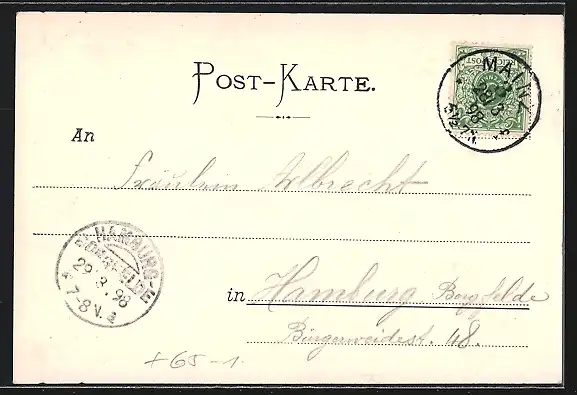 POST-KARTE.
MAINZ
28 3
98
An
Fräulein Albrecht
HAMBURG-
29.3.98
7-8 V.
in Hamburg Borgfelde
Bürgerweidest. 48.
+65-1